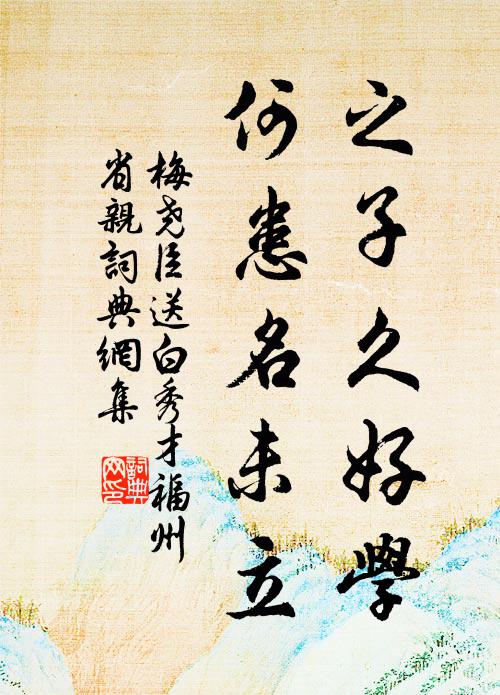 之子久好學
何患名未立
梅堯臣送白秀才福州
省親詞典網集
詞典
网印